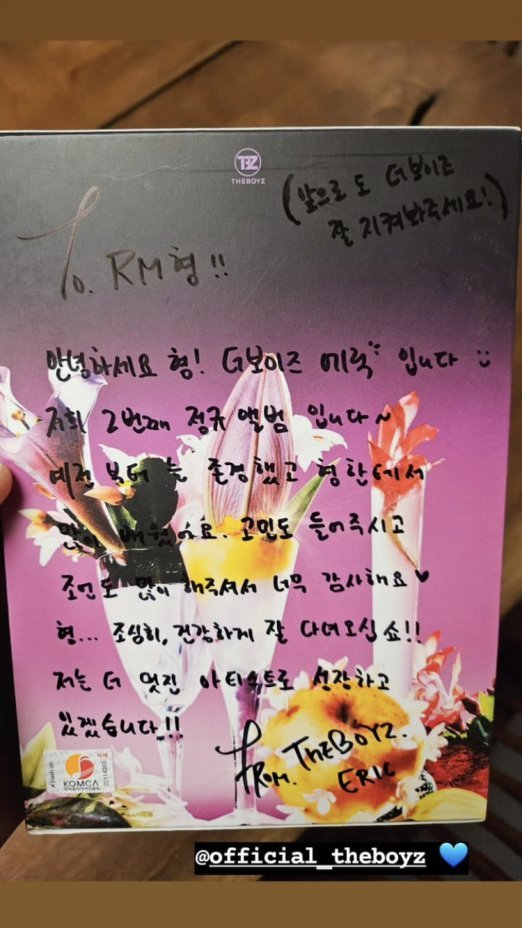 TBZ
THEBOYZ
(앞으로도 더보이즈
잘 지켜봐주세요!)
To. RM형!!
안녕하세요 형! 더보이즈 에릭 입니다
저희 2번째 정규 앨범 입니다~
예전 부터 늘 존경했고 형한테서
많이 배웠어요. 고민도 들어주시고
조언도 많이 해주셔서 너무 감사해요♥
형... 조심히, 건강하게 잘 다녀오십쇼!!
저는 더 멋진 아티스트로 성장하고
있겠습니다!!
FROM. THEBOYZ.
ERIC
KOMCA
@official_theboyz 💙